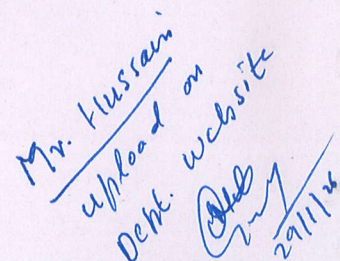 Mr. Hussain
upload on
Deptt. website
29/1/26